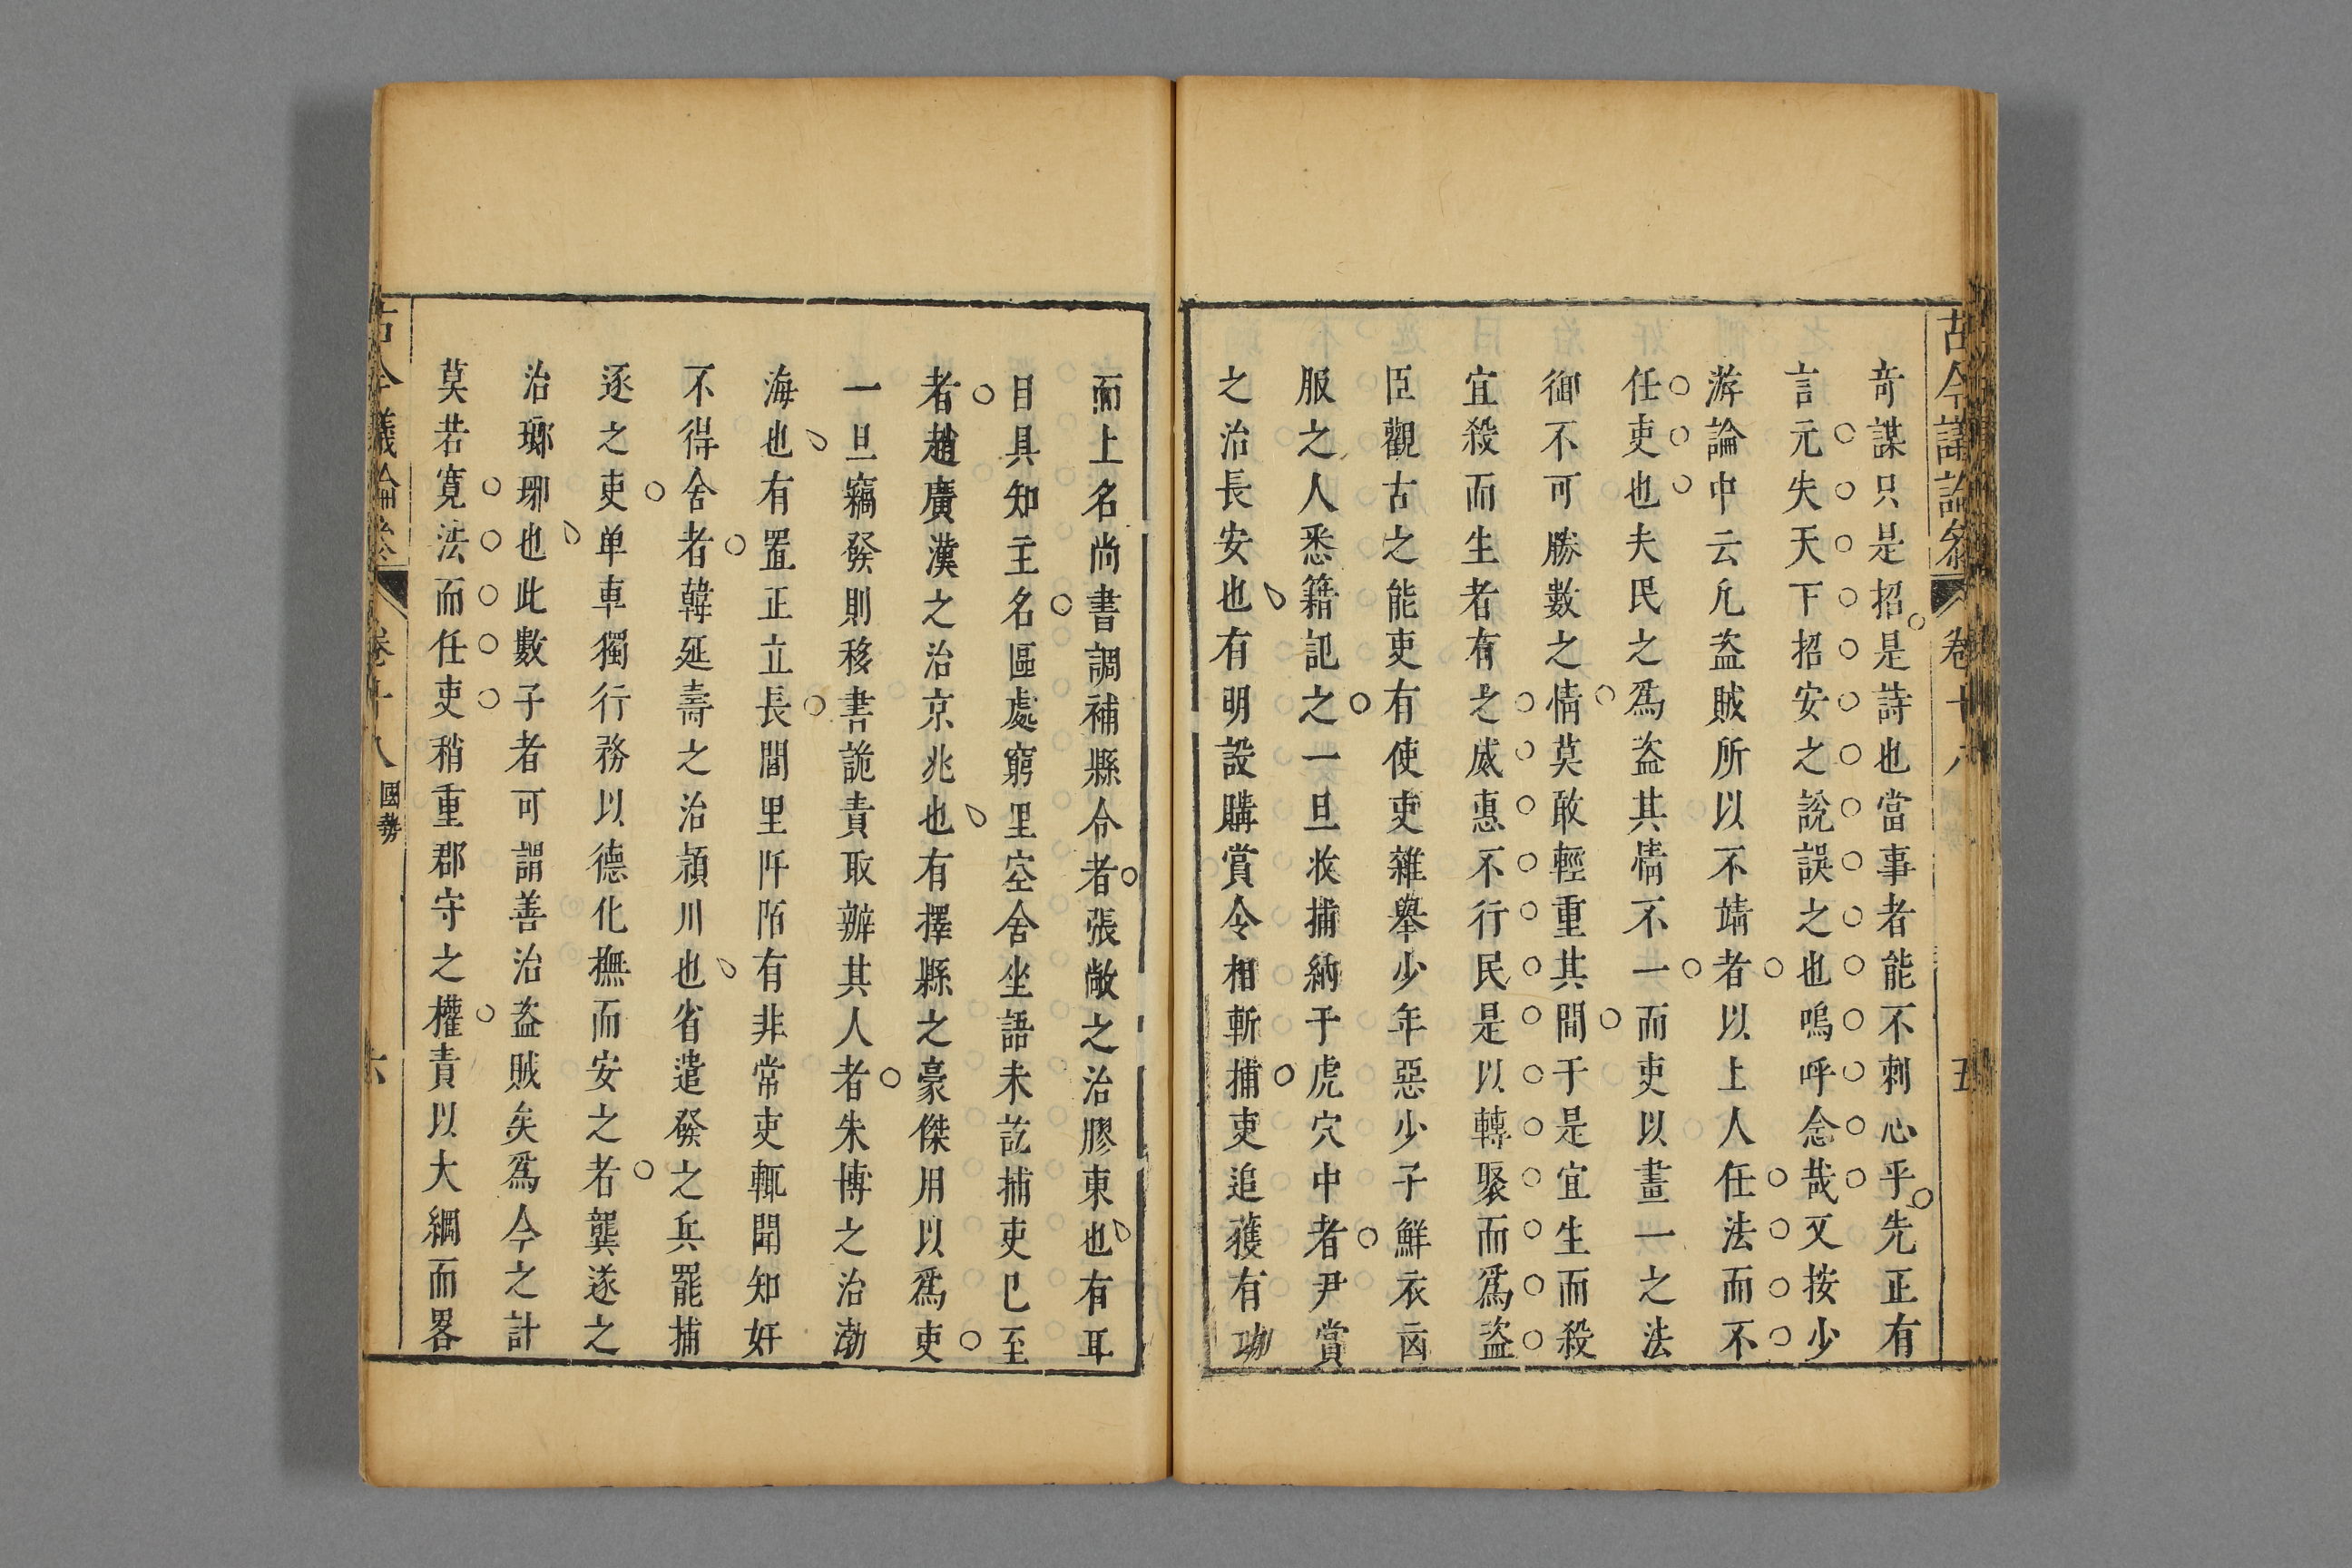 古今議論參
卷十八
五
竒謀只是招是詩也當事者能不刺心乎先正有
言元失天下招安之說誤之也嗚呼念哉又按少
游論中云凡盗賊所以不靖者以上人任法而不
任吏也夫民之爲盗其情不一而吏以畫一之法
御不可勝數之情莫敢輕重其間于是宜生而殺
宜殺而生者有之威惠不行民是以轉聚而爲盗
臣觀古之能吏有使吏雜舉少年惡少子鮮衣㐫
服之人悉籍記之一旦收捕納于虎穴中者尹賞
之治長安也有明設購賞令相斬捕吏追獲有功
而上名尚書調補縣令者張敞之治膠東也有耳
目具知主名區處窮里空舍坐語未訖捕吏已至
者趙廣漢之治京兆也有擇縣之豪傑用以爲吏
一旦竊發則移書詭責取辦其人者朱博之治渤
海也有置正立長間里阡陌有非常吏輒聞知奸
不得舍者韓延壽之治潁川也省遣發之兵罷捕
逐之吏单車獨行務以德化撫而安之者龔遂之
治瑯琊也此數子者可謂善治盗賊矣爲今之計
莫若寛法而任吏稍重郡守之權責以大綱而畧
古今議論參
卷十八
國勢
六